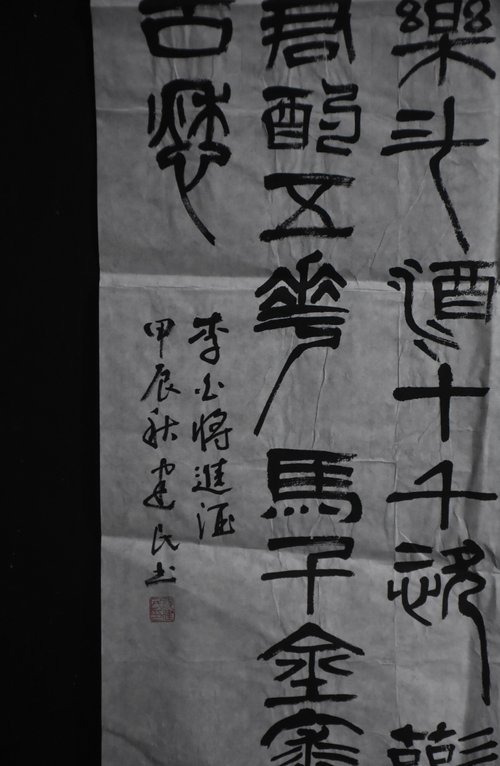 樂斗酒十千恣
君酌五華馬千金
古愁
李白將進酒
甲辰秋建民书